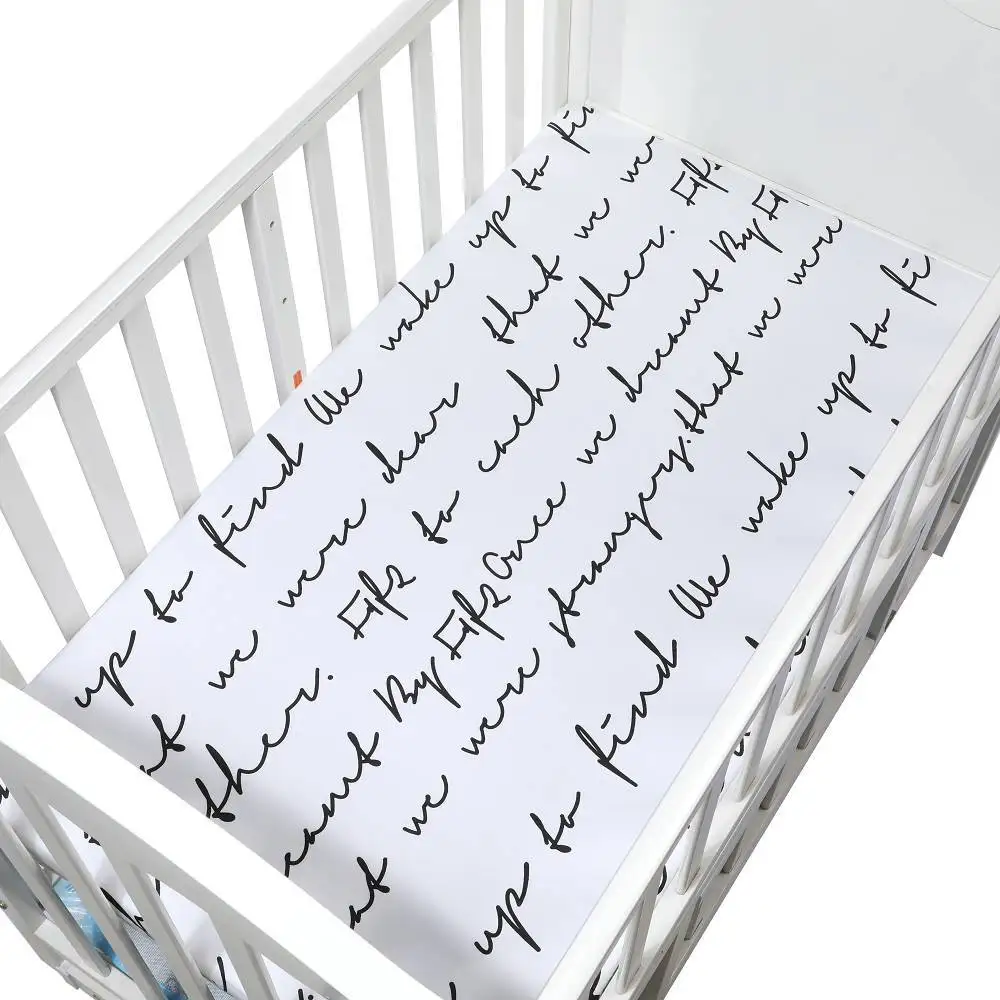 up to find We wake up to fin
at we were dear that we wer
ther. to each other.
eamt By Once we dreamt By
at we were strangers. that we were
up to find We wake up to fi